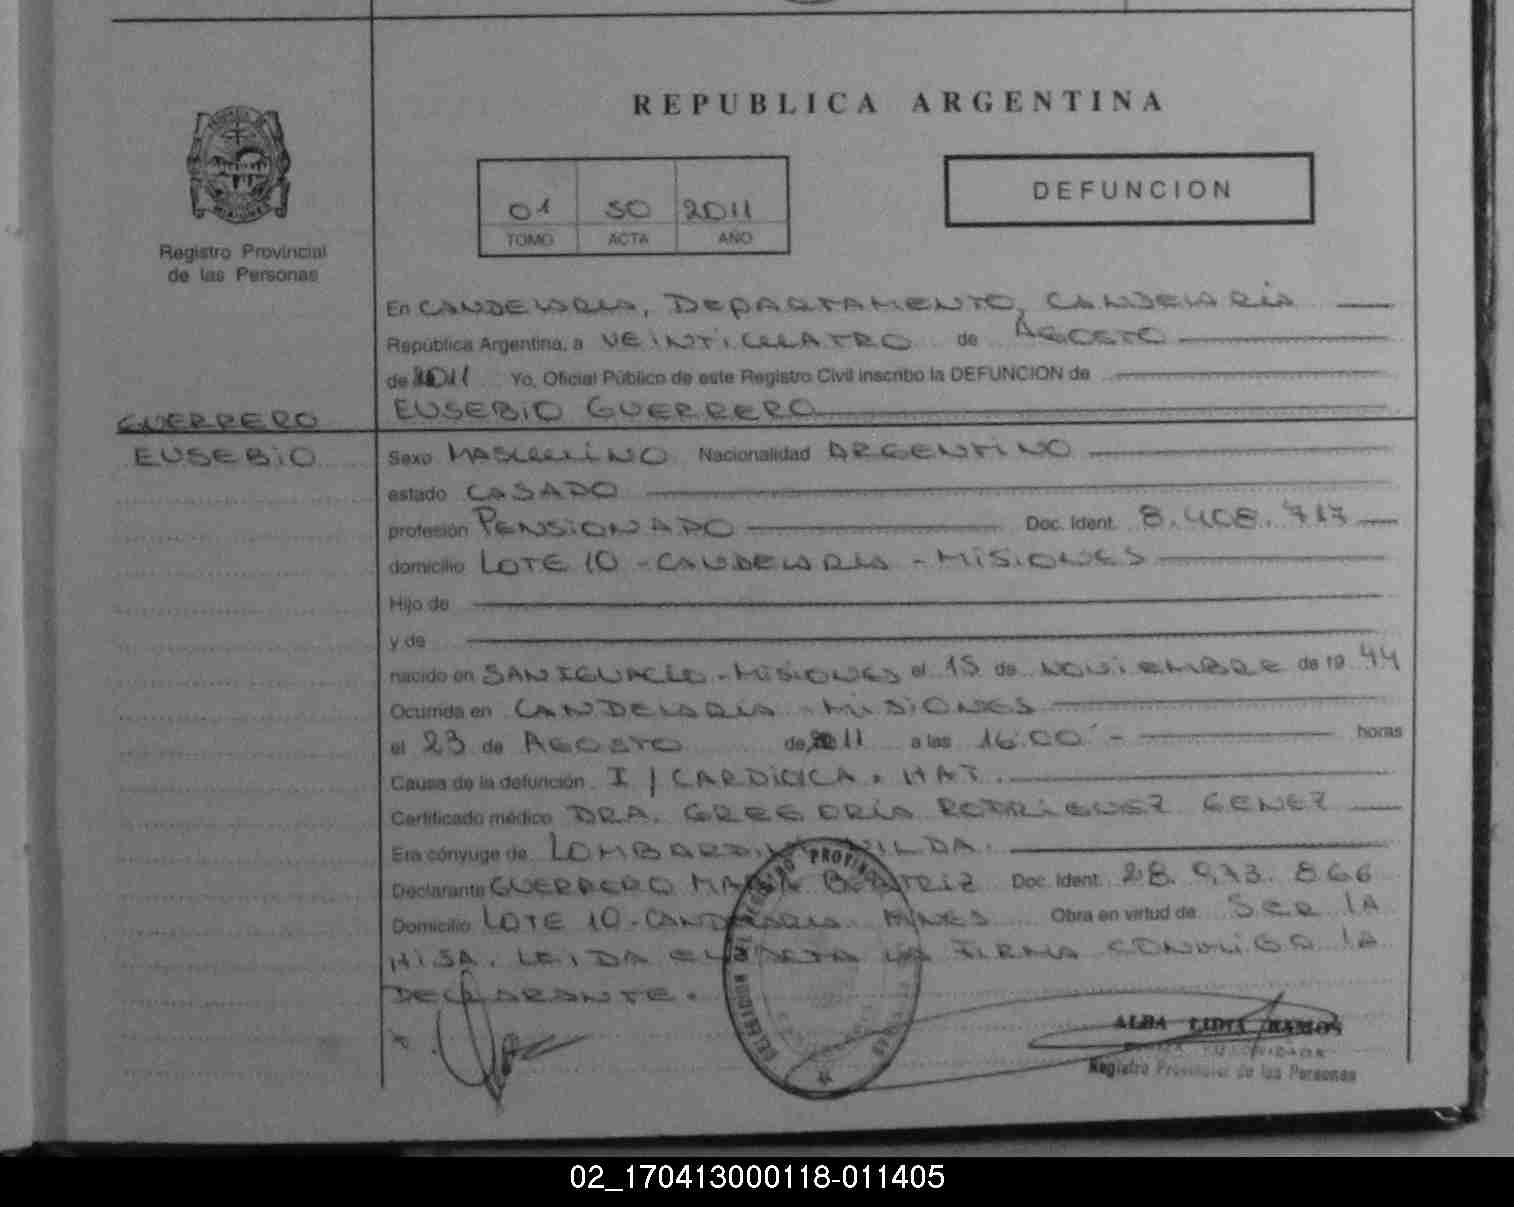 REPUBLICA ARGENTINA
01 50 2011
TOMO ACTA AÑO
DEFUNCION
Registro Provincial
de las Personas
En CANDELARIA, DEPARTAMENTO, CANDELARIA
República Argentina, a VEINTICUATRO de AGOSTO
de 2011 Yo, Oficial Público de este Registro Civil inscribo la DEFUNCION de
EUSEBIO GUERRERO
GUERRERO
EUSEBIO
Sexo MASCULINO Nacionalidad ARGENTINO
estado CASADO
profesión PENSIONADO Doc. Ident. 8.408.717
domicilio LOTE 10 - CANDELARIA - MISIONES
Hijo de
y de
nacido en SAN IGNACIO - MISIONES el 15 de NOVIEMBRE de 19 44
Ocurrida en CANDELARIA - MISIONES
el 23 de AGOSTO de 2011 a las 16:00 horas
Causa de la defunción I / CARDIACA. HAT.
Certificado médico DRA. GREGORIA RODRIGUEZ GENEZ
Era cónyuge de LOMBARDINI WILDA.
Declarante GUERRERO MARIA BEATRIZ Doc. Ident. 28.973.866
Domicilio LOTE 10 - CANDELARIA MNES Obra en virtud de SER LA
HIJA. LEIDA EL ACTA LA FIRMA CONMIGO LA
DECLARANTE.
DELEGACION DEL REGISTRO PROVINCIAL
ALBA LIDIA RAMOS
Registro Provincial de las Personas
02_170413000118-011405